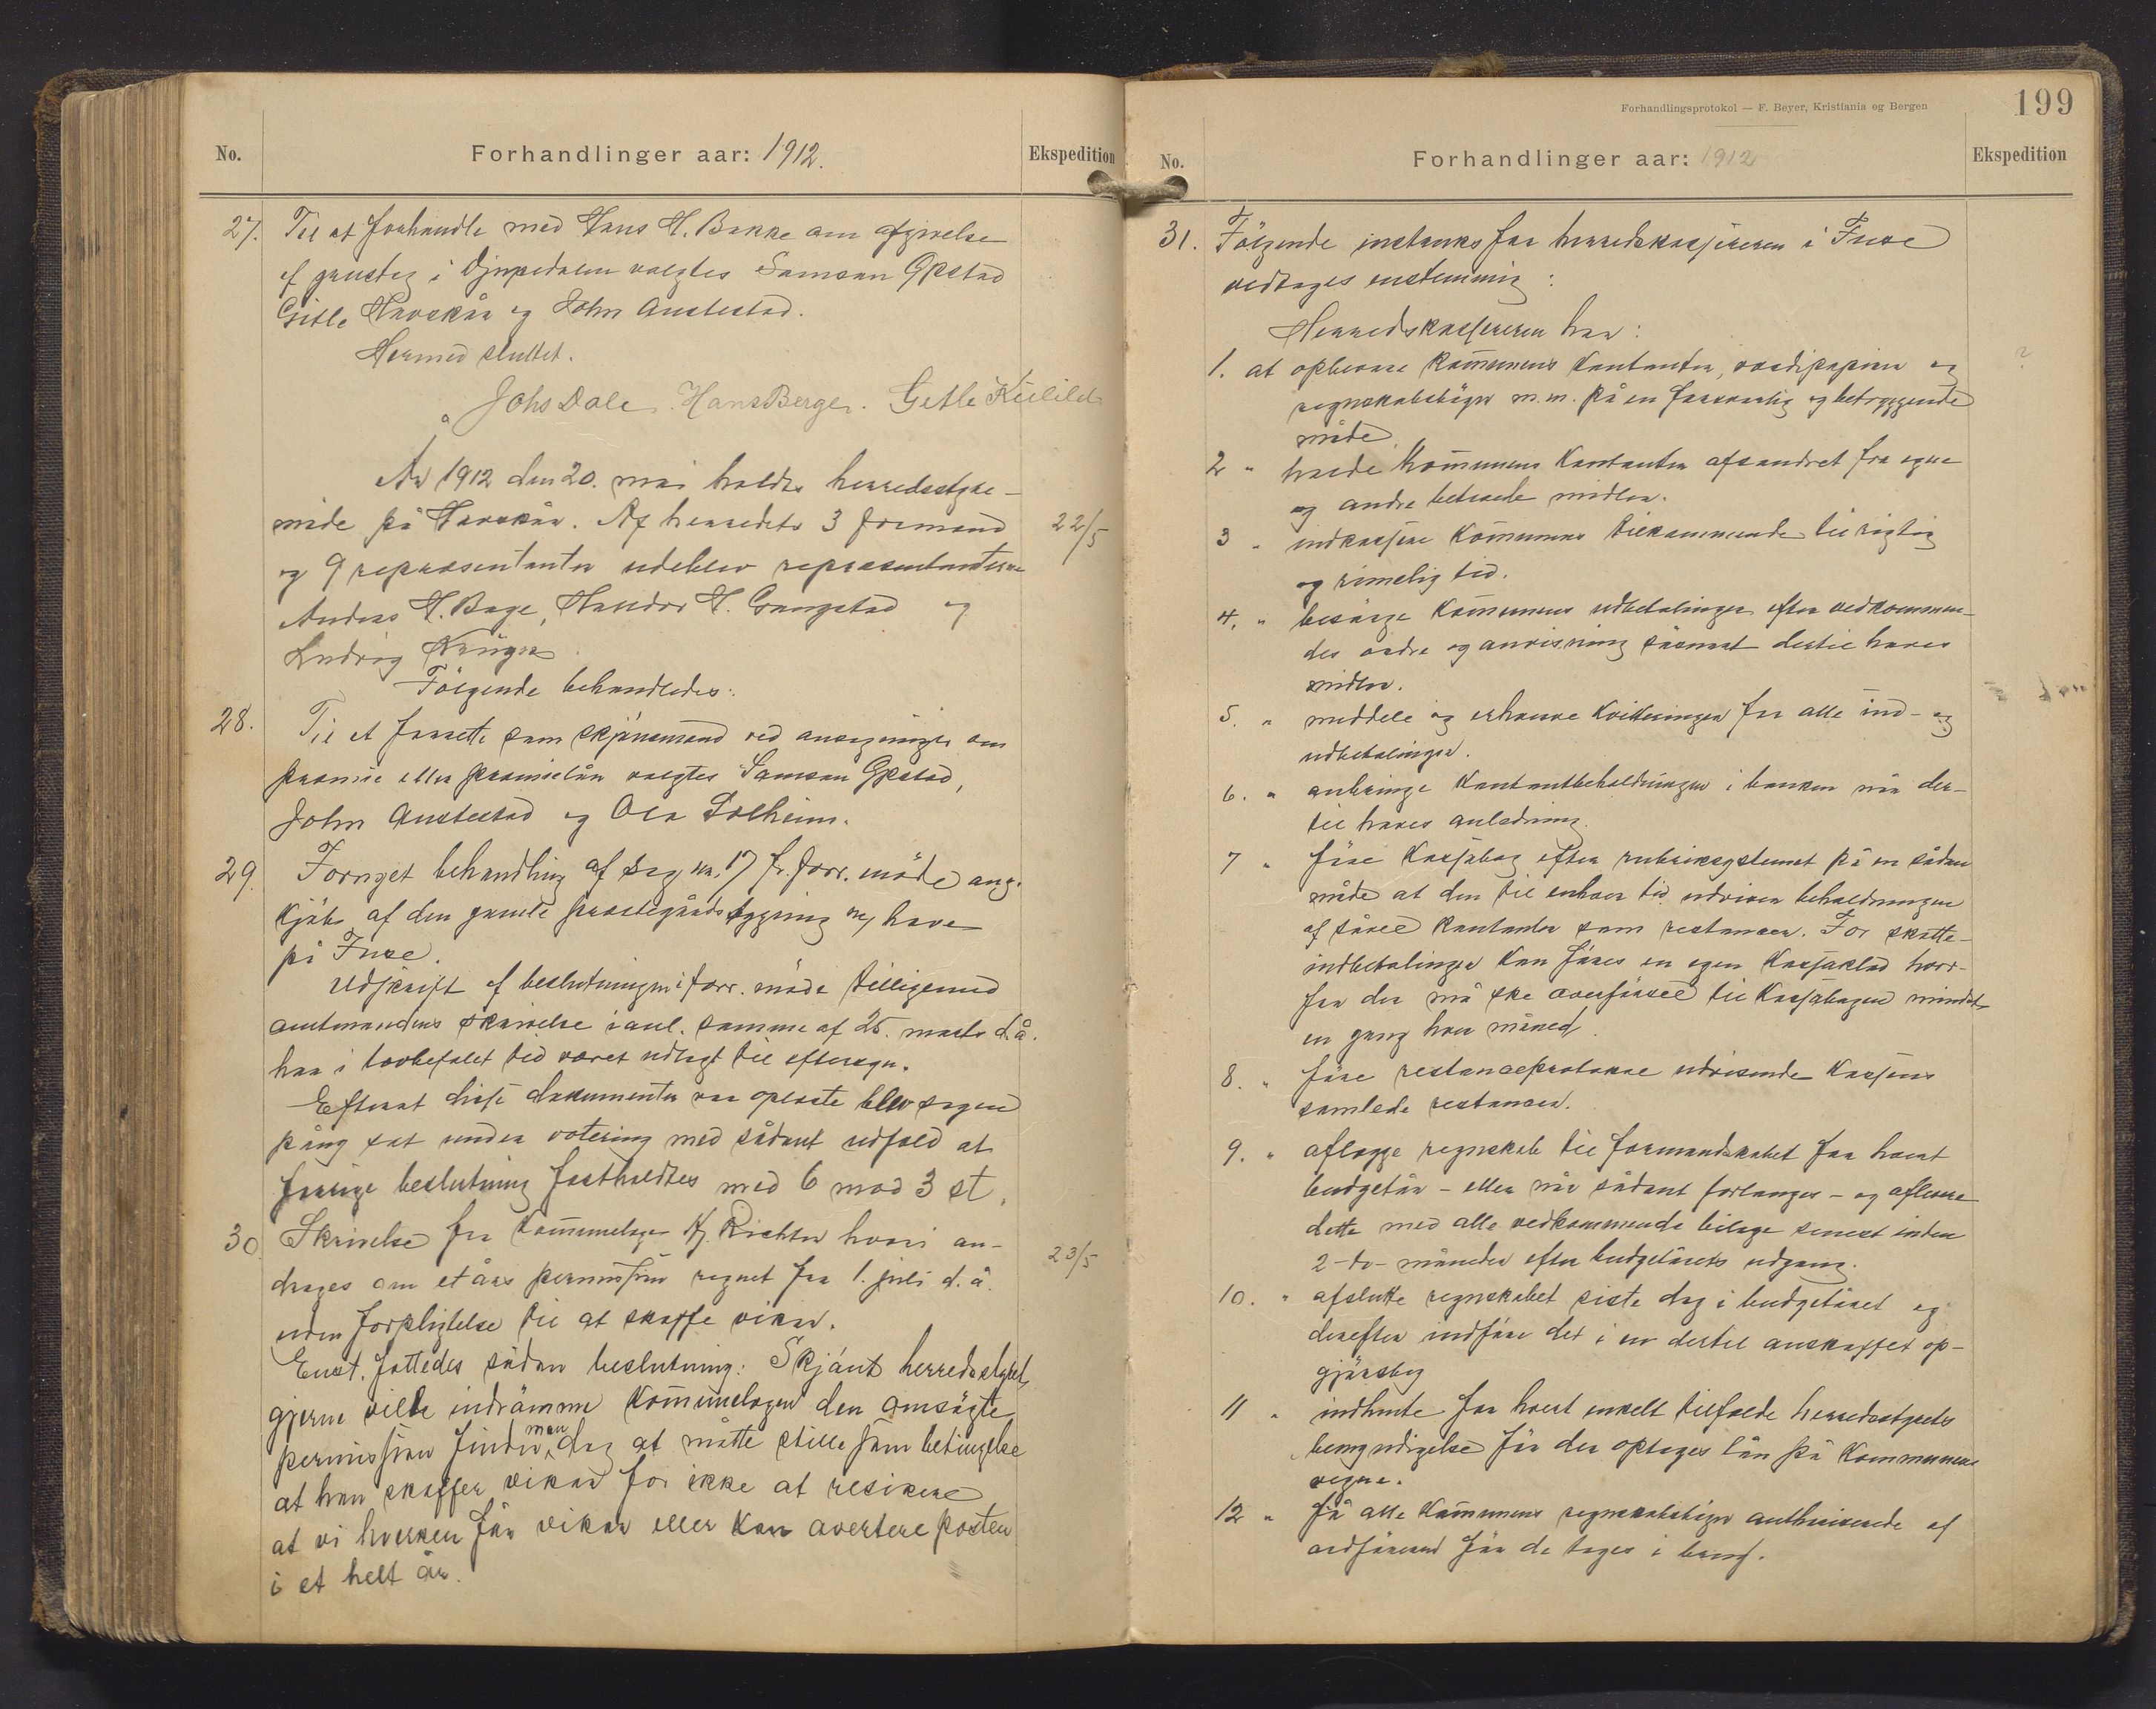 No.
Forhandlinger aar: 1912.
Ekspedition
27. Til at forhandle med Hans H. Bakke om afgivelse
af grustag i Djupedalen valgtes Samson Gjestad
Gitle Havskår og John Austestad.
Hermed sluttet.
Johs Dale. Hans Berge. Gitle
År 1912 den 20. mai holdtes herredsstyre-
møde på Havskår. Af herredets 3 formænd 22/5
og 9 repræsentanter udeblev repræsentanterne
Anders H. Bage, Halldor H. Gangstad og
Ludvig Krüger
Følgende behandledes:
28. Til at forrette som skjønsmænd ved ansøgninger om
præmie eller præmielån valgtes Samson Gjestad,
John Austestad og Ola Solheim.
29. Fornyet behandling af sag nr. 17 fr. forr. møde ang.
kjøb af den gamle præstegårdsbygning m/ have
på Fuse.
Udskrift af beslutningen i forr. møde tilligemed
amtmandens skrivelse i anl. samme af 25. marts d.å.
har i lovbefalet tid været udlagt til eftersyn.
Efterat disse dokumenter var oplæste blev sagen
pång sat under votering med sådant udfald at
forrige beslutning fastholdtes med 6 mod 3 st.
30. Skrivelse fra kommunelæge Hj. Richter hvori an- 23/5
drages om et års permission regnet fra 1. juli d.å.
uden forpligtelse til at skaffe vikar.
Enst. fattedes sådan beslutning: Skjønt herredsstyret
gjerne vilde indrømme kommunelægen den omsøgte
permission finder man dog at måtte stille som betingelse
at han skaffer vikar for ikke at resikere
at vi hverken får vikar eller kan avertere posten
i et helt år.
Forhandlingsprotokol — F. Beyer, Kristiania og Bergen
199
No.
Forhandlinger aar: 1912
Ekspedition
31. Følgende instruks for herredskassereren i Fuse
vedtages enstemmig:
Herredskassereren har:
1. at opbevare kommunens kontanter, værdipapirer og
regnskabsbøger m.m. på en forsvarlig og betryggende
måde.
2 " holde kommunens kontanter afsondret fra egne
og andre betroede midler.
3 " indkassere kommunens tilkommende til rigtig
og rimelig tid.
4. " besørge kommunens udbetalinger efter vedkommen-
des ordre og anvisning såsnart dertil haves
midler.
5. " meddele og erhverve kvitteringer for alle ind- og
udbetalinger.
6. " anbringe kontantbeholdningen i banken når der-
til haves anledning.
7 " føre kassabog efter rubriksystemet på en sådan
måde at den til enhver tid udviser beholdningen
af såvel kontanter som restancer. For skatte-
indbetalinger kan føres en egen kassaklad hvor-
fra der må ske overførsel til kassabogen mindst
en gang hver måned.
8. " føre restanceprotokol udvisende kassens
samlede restancer.
9. " aflægge regnskab til formandskabet for hvert
budgetår - eller når sådant forlanges - og aflevere
dette med alle vedkommende bilage senest inden
2 - to - måneder efter budgetårets udgang.
10. " afslutte regnskabet siste dag i budgetåret og
derefter indføre det i en dertil anskaffet op-
gjørsbog
11 " indhente for hvert enkelt tilfælde herredsstyrets
bemyndigelse før der optages lån på kommunens
vegne.
12 " få alle kommunens regnskabsbøger authoriserede af
ordføreren før de tages i brug.